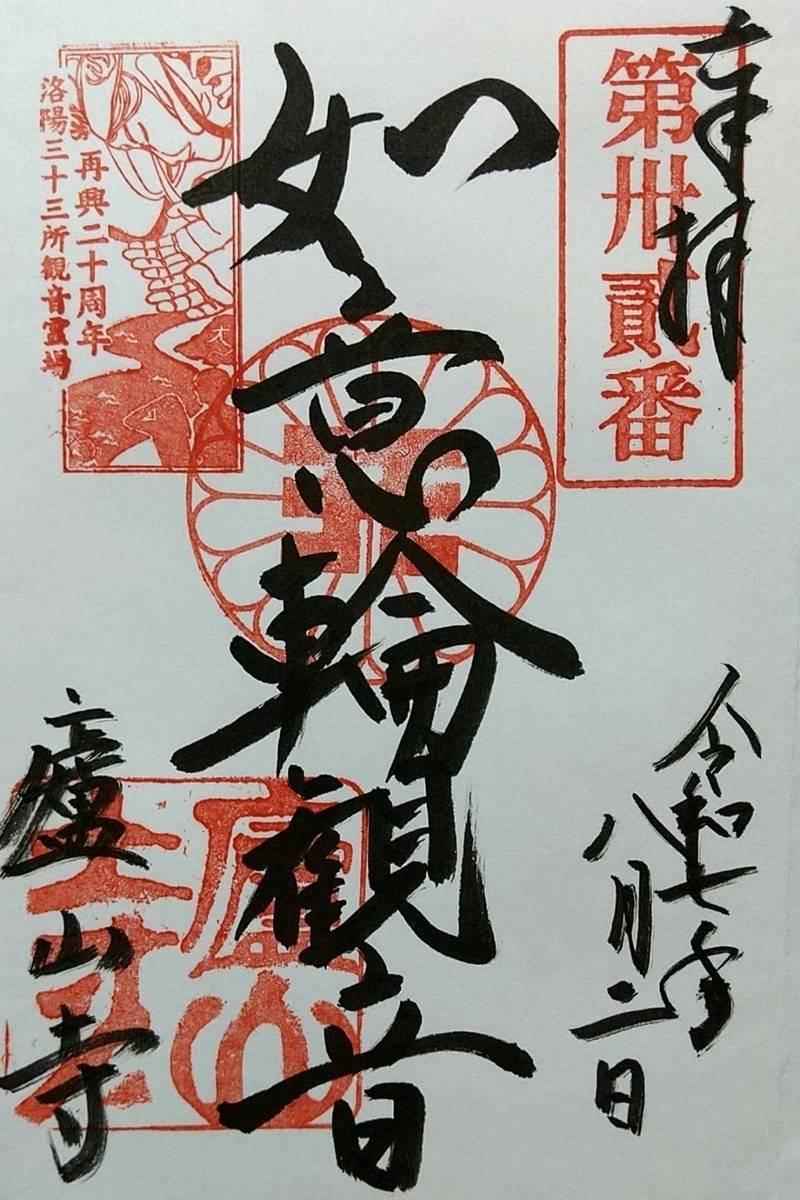 奉拝
第卅貳番
令和七年
八月二日
如意輪觀音
再興二十周年
洛陽三十三所観音霊場
廬山寺
廬山寺